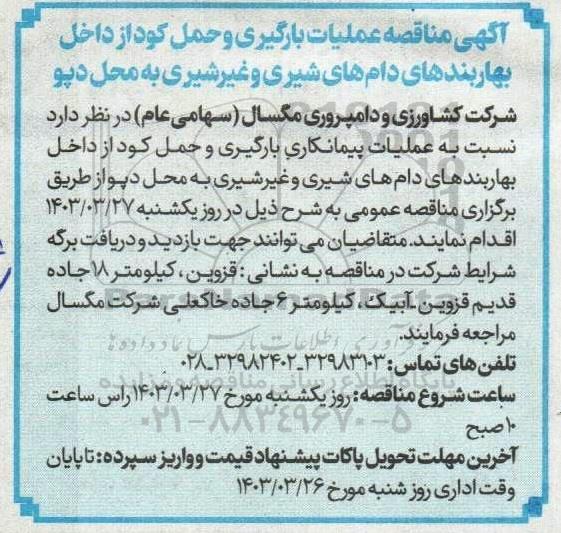 آگهی مناقصه عملیات بارگیری و حمل کود از داخل
بهاربندهای دام های شیری و غیرشیری به محل دپو
شرکت کشاورزی و دامپروری مگسال (سهامی عام) در نظر دارد
نسبت به عملیات پیمانکاری بارگیری و حمل کود از داخل
بهاربندهای دام های شیری و غیرشیری به محل دپو از طریق
برگزاری مناقصه عمومی به شرح ذیل در روز یکشنبه ۱۴۰۳/۰۳/۲۷
اقدام نمایند. متقاضیان می توانند جهت بازدید و دریافت برگه
شرایط شرکت در مناقصه به نشانی: قزوین، کیلومتر ۱۸ جاده
قدیم قزوین ـ آبیک، کیلومتر ۶ جاده خاکعلی شرکت مگسال
مراجعه فرمایند.
تلفن های تماس: ۳۲۹۸۳۱۰۳ـ۳۲۹۸۲۴۰۲ـ۰۲۸
ساعت شروع مناقصه: روز یکشنبه مورخ ۱۴۰۳/۰۳/۲۷ راس ساعت
۱۰ صبح
آخرین مهلت تحویل پاکات پیشنهاد قیمت و واریز سپرده: تا پایان
وقت اداری روز شنبه مورخ ۱۴۰۳/۰۳/۲۶
پایگاه اطلاع رسانی مناقصه و مزایده
۰۲۱-۸۸۳۴۹۶۷۰-۵